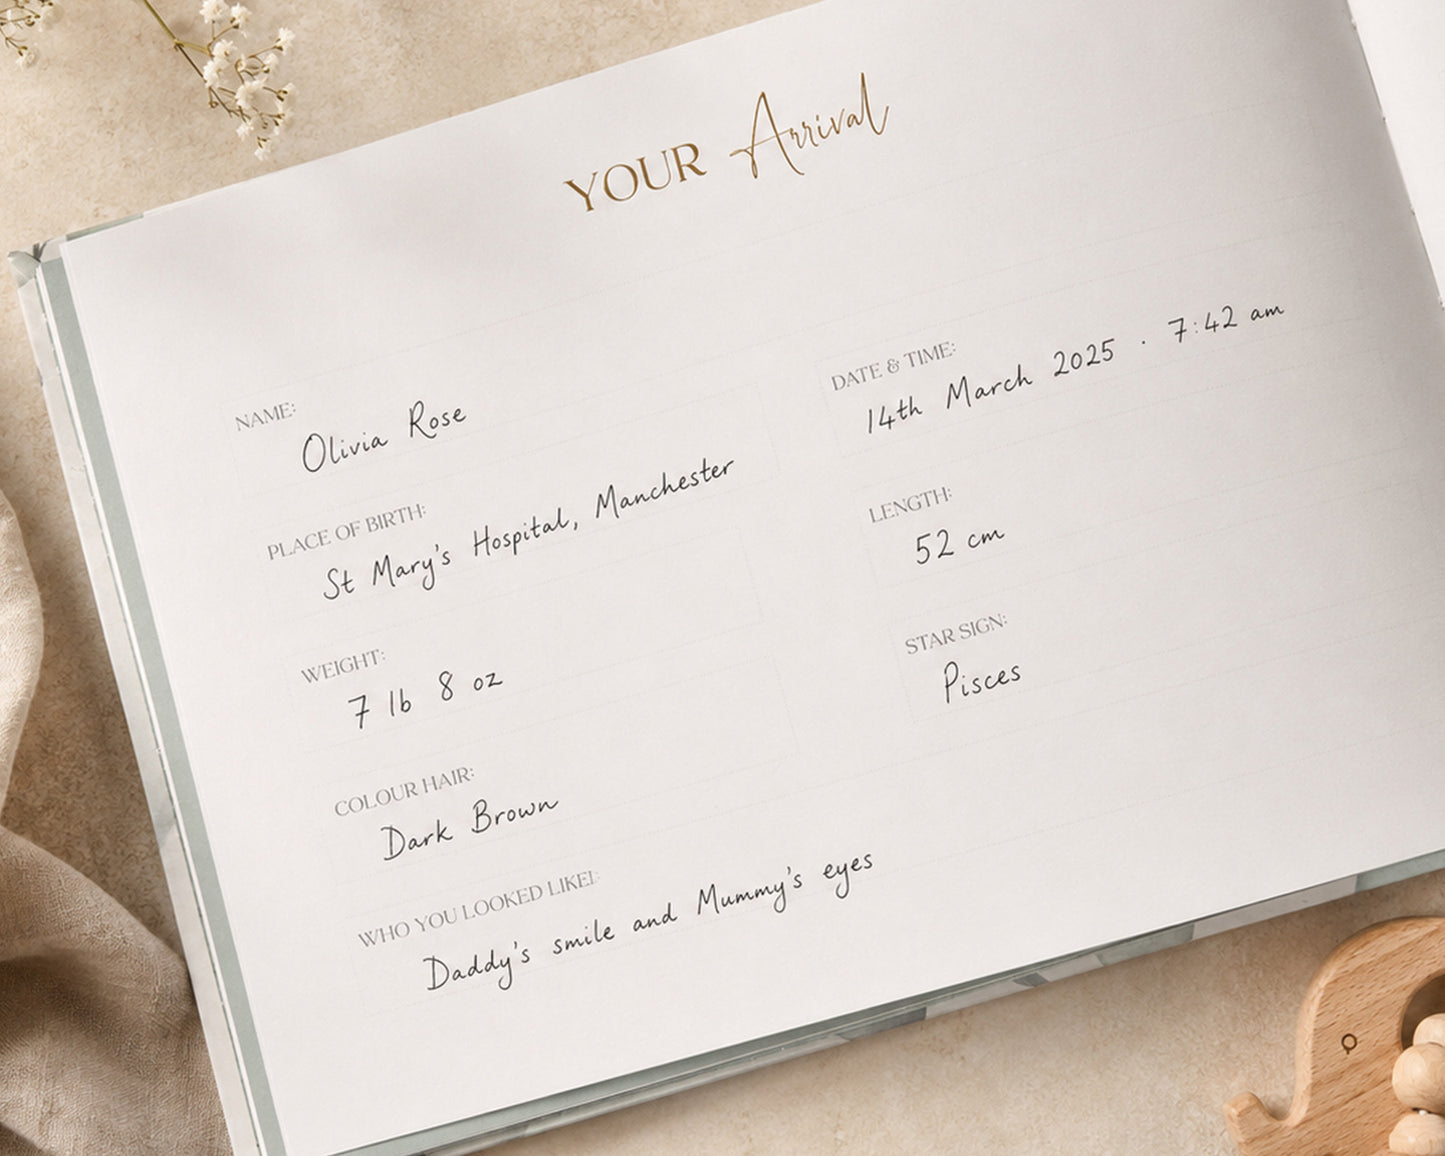 YOUR Arrival
NAME:
Olivia Rose
DATE & TIME:
14th March 2025 · 7:42 am
PLACE OF BIRTH:
St Mary's Hospital, Manchester
LENGTH:
52 cm
WEIGHT:
7 lb 8 oz
STAR SIGN:
Pisces
COLOUR HAIR:
Dark Brown
WHO YOU LOOKED LIKE:
Daddy's smile and Mummy's eyes